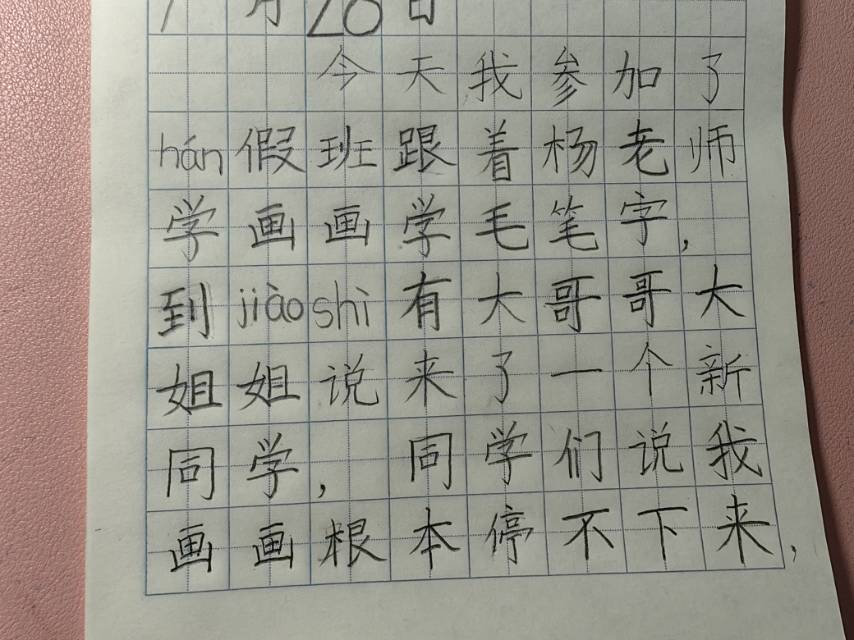 月28日
今天我参加了
hán假班跟着杨老师
学画画学毛笔字，
到jiàoshì有大哥哥大
姐姐说来了一个新
同学，同学们说我
画画根本停不下来，